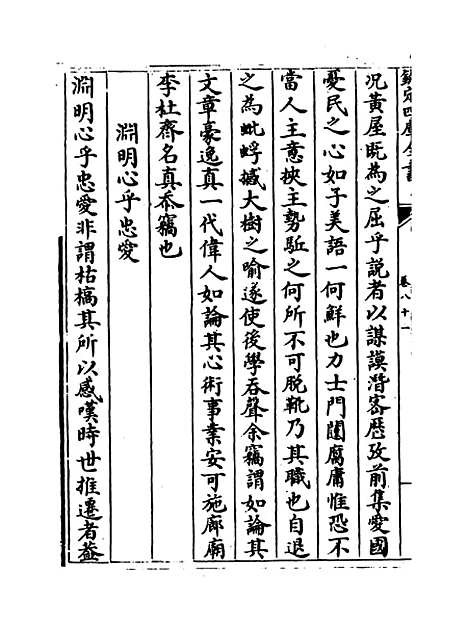 欽定四庫全書
卷八十一
況黃屋既為之屈乎說者以謀謨潛密歷攷前集愛國
憂民之心如子美語一何鮮也力士門閽腐庸惟恐不
當人主意挾主勢駈之何所不可脫靴乃其職也自退
之為蚍蜉撼大樹之喻遂使後學吞聲余竊謂如論其
文章豪逸真一代偉人如論其心術事業安可施廊廟
李杜齋名真忝竊也
淵明心乎忠愛
淵明心乎忠愛非謂枯槁其所以感嘆時世推遷者葢